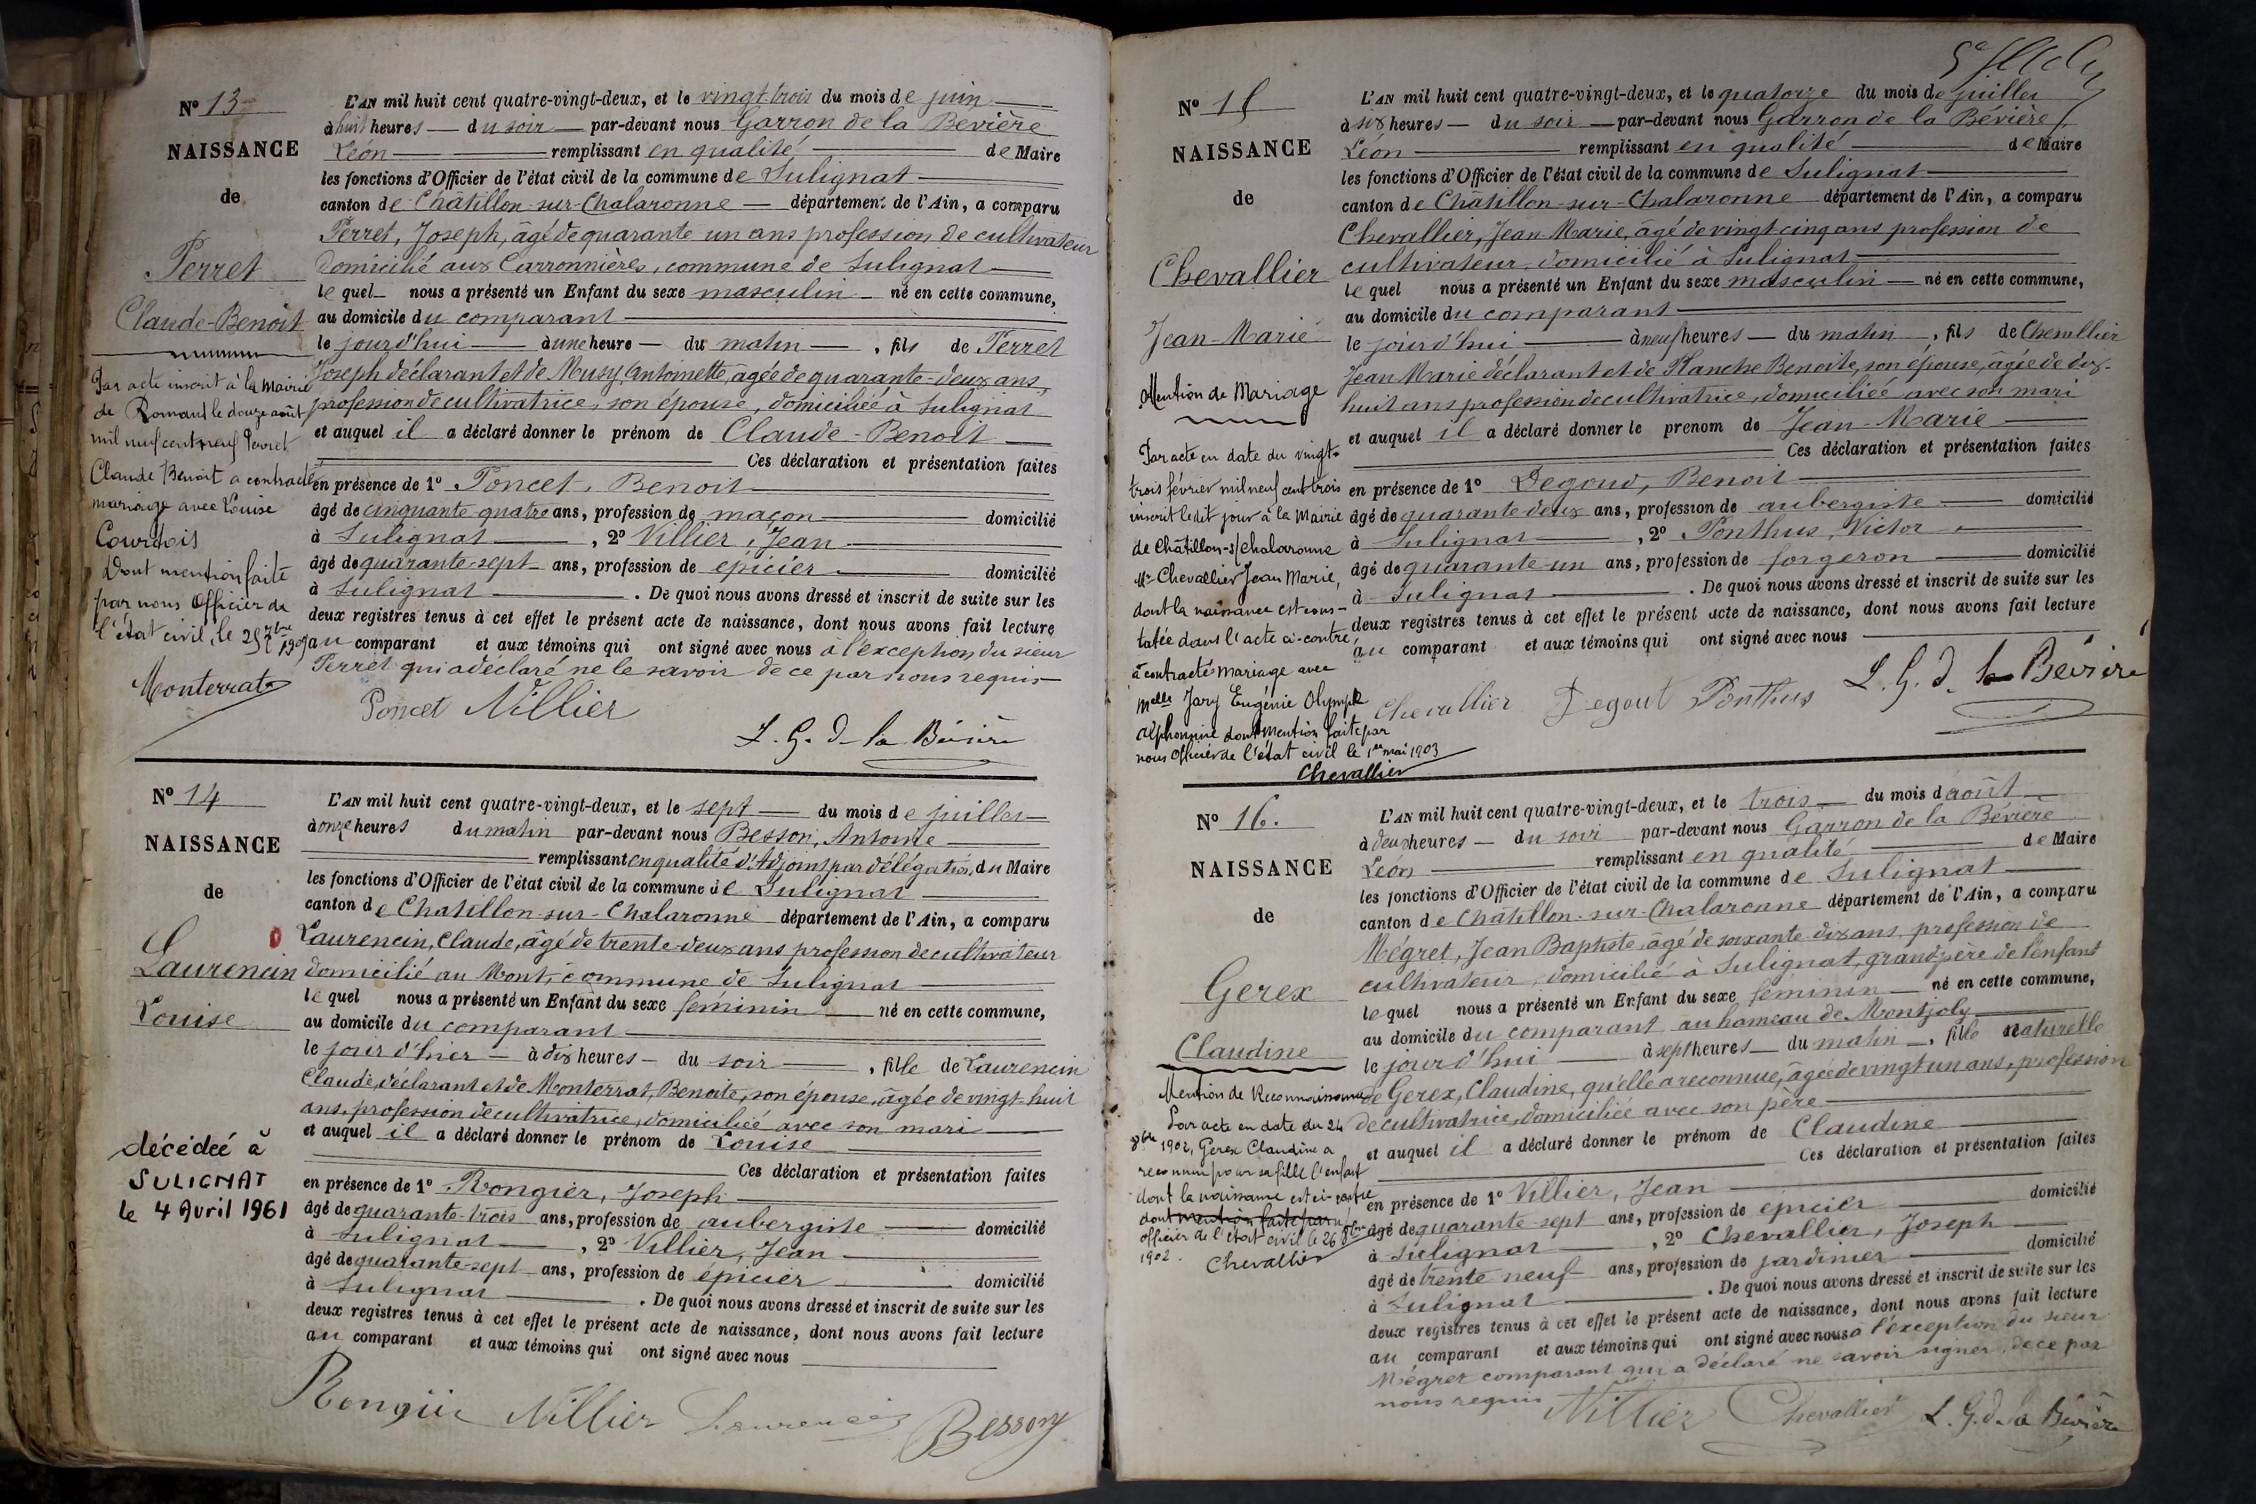 Nº 13
NAISSANCE
de
Perret
Claude-Benoit
Par acte inscrit à la Mairie
de Romans le douze août
mil neuf cent neuf Perret
Claude Benoit a contracté
mariage avec Louise
Courtois
Dont mention faite
par nous Officier de
l'état civil, le 25 7bre 1909
Monterrat
L'AN mil huit cent quatre-vingt-deux, et le vingt-trois du mois de juin
à huit heures du soir par-devant nous Garron de la Bevière
Léon remplissant en qualité de Maire
les fonctions d'Officier de l'état civil de la commune de Sulignat
canton de Châtillon-sur-Chalaronne département de l'Ain, a comparu
Perret, Joseph, âgé de quarante un ans profession de cultivateur
domicilié aux Carronnières, commune de Sulignat
lequel nous a présenté un Enfant du sexe masculin né en cette commune,
au domicile du comparant
le jourd'hui à une heure du matin, fils de Perret
Joseph déclarant et de Musy, Antoinette, âgée de quarante-deux ans,
profession de cultivatrice, son épouse, domiciliée à Sulignat
et auquel il a déclaré donner le prénom de Claude-Benoit
Ces déclaration et présentation faites
en présence de 1º Poncet, Benoit
âgé de cinquante quatre ans, profession de maçon domicilié
à Sulignat, 2º Villier, Jean
âgé de quarante-sept ans, profession de épicier domicilié
à Sulignat. De quoi nous avons dressé et inscrit de suite sur les
deux registres tenus à cet effet le présent acte de naissance, dont nous avons fait lecture
au comparant et aux témoins qui ont signé avec nous à l'exception du sieur
Perret qui a déclaré ne le savoir de ce par nous requis
Poncet Villier
L. G. d la Bévière
Nº 14
NAISSANCE
de
Laurencin
Louise
décédée à
SULIGNAT
le 4 Avril 1961
L'AN mil huit cent quatre-vingt-deux, et le sept du mois de juillet
à onze heures du matin par-devant nous Besson, Antoine
remplissant en qualité d'Adjoint par délégation du Maire
les fonctions d'Officier de l'état civil de la commune de Sulignat
canton de Chatillon-sur-Chalaronne département de l'Ain, a comparu
Laurencin, Claude, âgé de trente-deux ans profession de cultivateur
domicilié au Mont, commune de Sulignat
lequel nous a présenté un Enfant du sexe féminin né en cette commune,
au domicile du comparant
le jour d'hier à dix heures du soir, fille de Laurencin
Claude, déclarant et de Monterrat, Benoite, son épouse, âgée de vingt-huit
ans, profession de cultivatrice, domiciliée avec son mari
et auquel il a déclaré donner le prénom de Louise
Ces déclaration et présentation faites
en présence de 1º Rongier, Joseph
âgé de quarante-trois ans, profession de aubergiste domicilié
à Sulignat, 2º Villier, Jean
âgé de quarante-sept ans, profession de épicier domicilié
à Sulignat. De quoi nous avons dressé et inscrit de suite sur les
deux registres tenus à cet effet le présent acte de naissance, dont nous avons fait lecture
au comparant et aux témoins qui ont signé avec nous
Rongier Villier Laurencin Besson
Nº 15
NAISSANCE
de
Chevallier
Jean-Marie
Mention de Mariage
Par acte en date du vingt-
trois février mil neuf cent trois
inscrit ledit jour à la Mairie
de Châtillon-s/Chalaronne
Mr Chevallier Jean Marie,
dont la naissance est cons-
tatée dans l'acte ci-contre,
a contracté mariage avec
Melle Jary Eugénie Olympe
Alphonsine dont mention faite par
nous Officier de l'état civil le 1er mai 1903
Chevallier
L'AN mil huit cent quatre-vingt-deux, et le quatorze du mois de juillet
à six heures du soir par-devant nous Garron de la Bévière
Léon remplissant en qualité de Maire
les fonctions d'Officier de l'état civil de la commune de Sulignat
canton de Châtillon-sur-Chalaronne département de l'Ain, a comparu
Chevallier, Jean-Marie, âgé de vingt cinq ans profession de
cultivateur, domicilié à Sulignat
lequel nous a présenté un Enfant du sexe masculin né en cette commune,
au domicile du comparant
le jourd'hui à neuf heures du matin, fils de Chevallier
Jean-Marie déclarant et de Planche Benoite, son épouse, âgée de dix-
huit ans profession de cultivatrice, domiciliée avec son mari
et auquel il a déclaré donner le prenom de Jean-Marie
Ces déclaration et présentation faites
en présence de 1º Degoud, Benoit
âgé de quarante deux ans, profession de aubergiste domicilié
à Sulignat, 2º Ponthus, Victor
âgé de quarante-un ans, profession de forgeron domicilié
à Sulignat. De quoi nous avons dressé et inscrit de suite sur les
deux registres tenus à cet effet le présent acte de naissance, dont nous avons fait lecture
au comparant et aux témoins qui ont signé avec nous
Chevallier Degout Ponthus L. G. d. la Bévière
Nº 16.
NAISSANCE
de
Gerex
Claudine
Mention de Reconnaissance
Par acte en date du 24
8bre 1902, Gerex Claudine a
reconnu pour sa fille l'enfant
dont la naissance est ci-contre
dont mention faite par nous
officier de l'état civil le 26 8bre
1902.
Chevallier
L'AN mil huit cent quatre-vingt-deux, et le trois du mois d'août
à deux heures du soir par-devant nous Garron de la Bévière
Léon remplissant en qualité de Maire
les fonctions d'Officier de l'état civil de la commune de Sulignat
canton de Châtillon-sur-Chalaronne département de l'Ain, a comparu
Mégret, Jean Baptiste, âgé de soixante-dix ans, profession de
cultivateur, domicilié à Sulignat, grand-père de l'enfant
lequel nous a présenté un Enfant du sexe féminin né en cette commune,
au domicile du comparant au hameau de Montjoly
le jourd'hui à sept heures du matin, fille naturelle
de Gerex, Claudine, qu'elle a reconnue, âgée de vingt un ans, profession
de cultivatrice, domiciliée avec son père
et auquel il a déclaré donner le prénom de Claudine
Ces déclaration et présentation faites
en présence de 1º Villier, Jean
âgé de quarante-sept ans, profession de épicier domicilié
à Sulignat, 2º Chevallier, Joseph
âgé de trente neuf ans, profession de jardinier domicilié
à Sulignat. De quoi nous avons dressé et inscrit de suite sur les
deux registres tenus à cet effet le présent acte de naissance, dont nous avons fait lecture
au comparant et aux témoins qui ont signé avec nous à l'exception du sieur
Mégret comparant qui a déclaré ne savoir signer, de ce par
nous requis
Villier Chevallier L. G. d. la Bévière